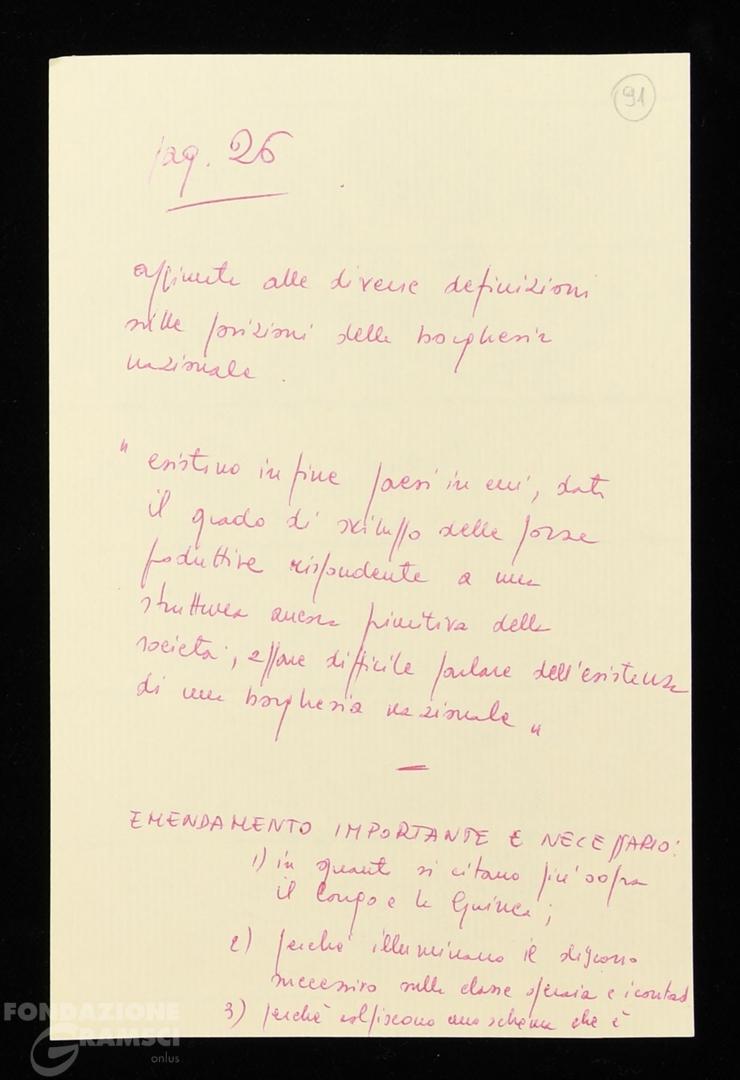 91
pag. 26
aggiunta alle diverse definizioni
sulle posizioni della borghesia
nazionale.
" esistono infine paesi in cui, dato
il grado di sviluppo delle forze
produttive rispondente a una
struttura ancora primitiva della
società, appare difficile parlare dell'esistenza
di una borghesia nazionale "
EMENDAMENTO IMPORTANTE E NECESSARIO:
1) in quanto si citano più sopra
il Congo e la Guinea;
2) perché illuminano il discorso
successivo sulla classe operaia e i contad
3) perché colpiscono uno schema che è
FONDAZIONE
GRAMSCI
onlus